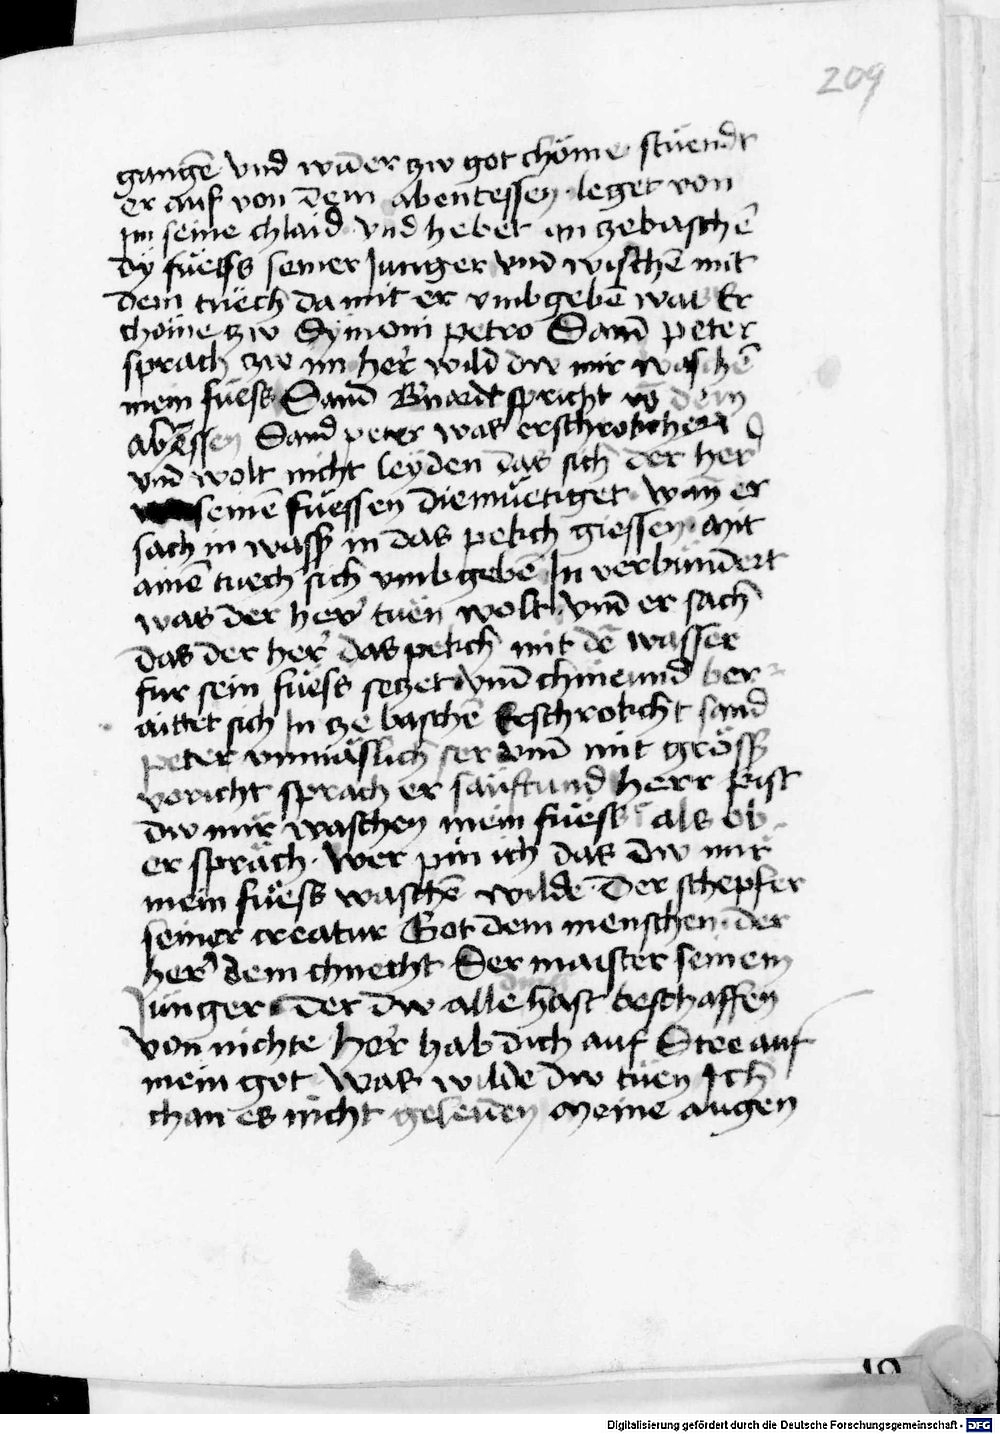 209
gangē vnd wid̄er zw got chöme stuendt
er auf von dem abentessen leget von
im seine chlaid vnd hebet an ze baschē
dÿ fuëss seiner Junger vnd wischē mit
dem tuech da mit er vmbgebē was Er
chöme zw Sÿmoni petro Sand peter
sprach zw im her wild dw mir waschē
mein fuëss Sand Bnardt spricht vō dem
abēssen Sand peter was erschrokchen
vnd wolt nicht leÿden das sich der her
seinē fuëssen diemuëtiget wan̄ er
sach in wasß in das pekch giessen mit
ainē tuech sich vmbgebē In verbundert
was der her tuën wolt vnd er sach
das der her das pekch mit dē wasser
fur sein fuëss seczet vnd chnieund ber
aittet sich In ze baschē Erschrokcht sand
peter vnmäslich ser vnd mit grösß
voricht sprach er saüftund herr pist
dw mir waschen mein fuëss als ob
er spräch wer pin ich das dw mir
mein fuëss waschē wilde Der schepfer
seiner creatur Got dem menschen der
her dem chnecht Der maister seinem
Junger Der dw alle hast beschaffen
von nichte her hab dich auf Stee auf
mein got was wilde dw tuën Ich
chan es nicht geleiden Meine augen
Digitalisierung gefördert durch die Deutsche Forschungsgemeinschaft - DFG